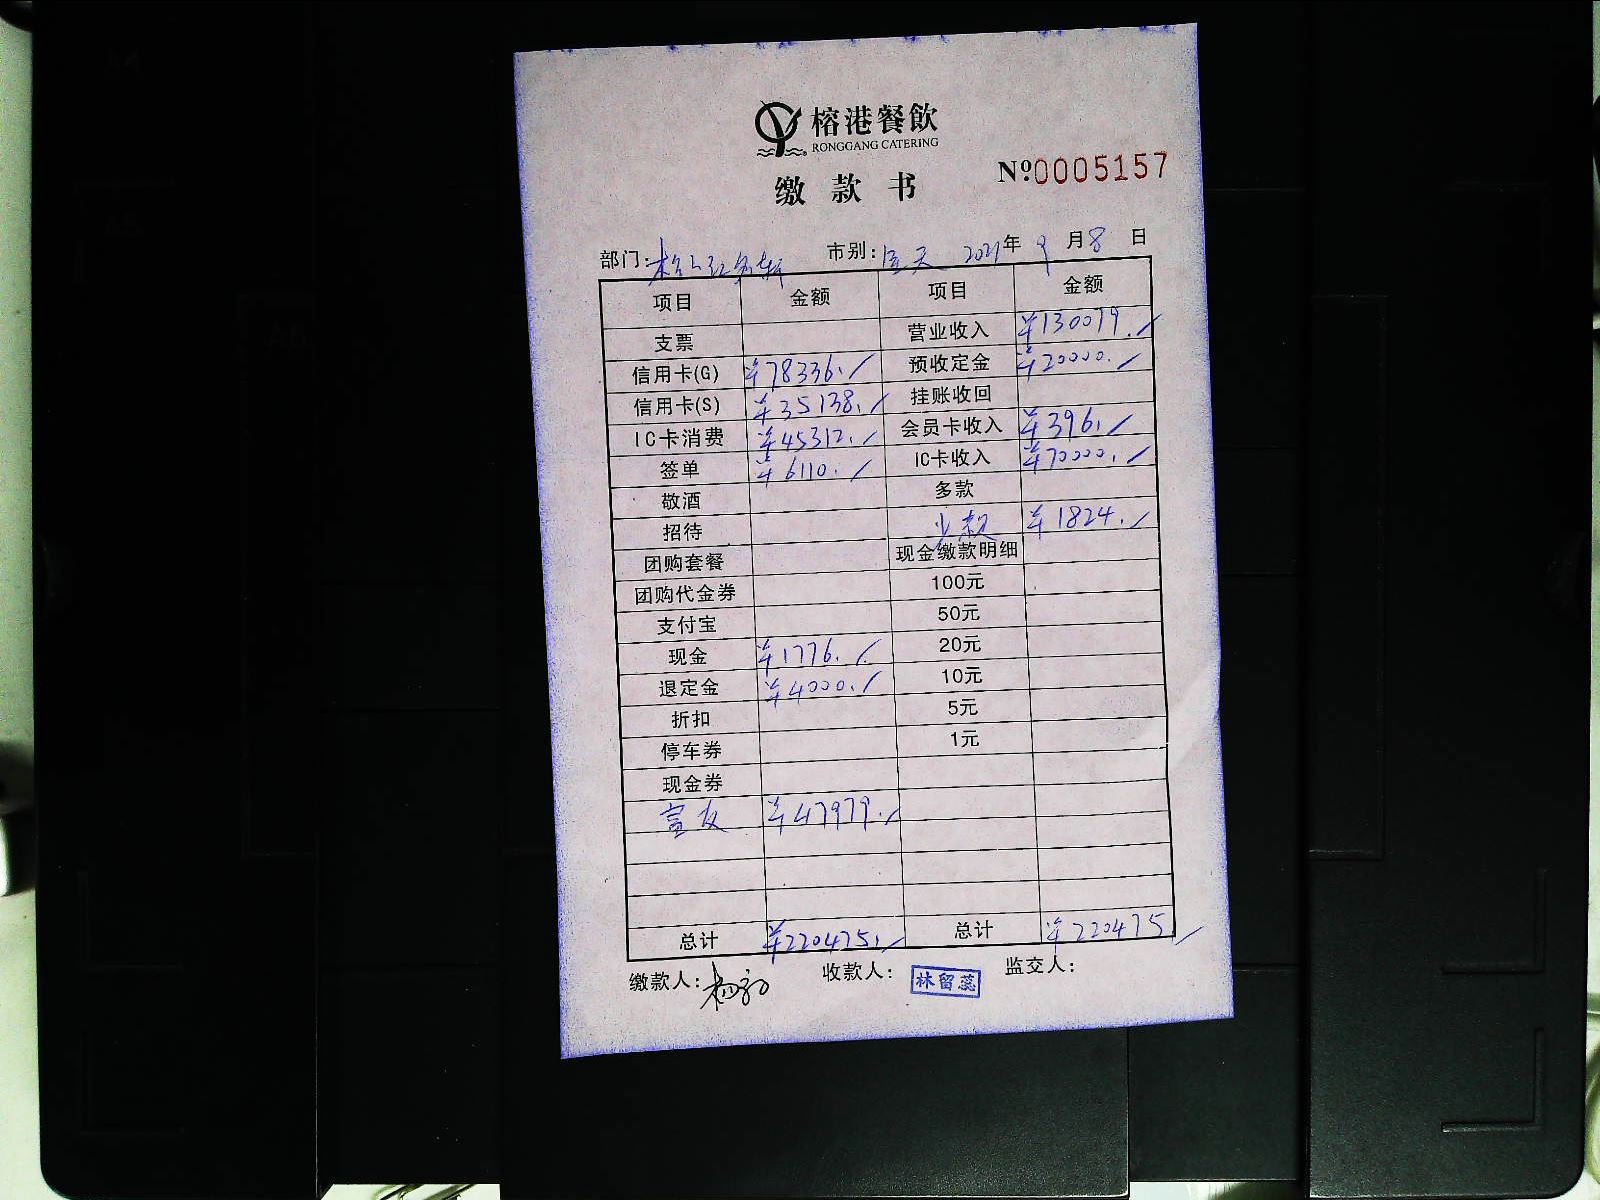 榕港餐飲
RONGGANG CATERING
缴款书 Nº0005157
部门: 市别:全天 2021年9月8日
项目 金额 项目 金额
支票 营业收入 ¥130079.
信用卡(G) ¥78336. 预收定金 ¥20000.
信用卡(S) ¥35138. 挂账收回
IC卡消费 ¥45312. 会员卡收入 ¥396.
签单 ¥6110. IC卡收入 ¥70000.
敬酒 多款
招待 少款 ¥1824.
团购套餐 现金缴款明细
团购代金券 100元
支付宝 50元
现金 ¥1776. 20元
退定金 ¥4000. 10元
折扣 5元
停车券 1元
现金券
富友 ¥47979.
总计 ¥220475. 总计 ¥220475
缴款人: 收款人: 林留蕊 监交人: